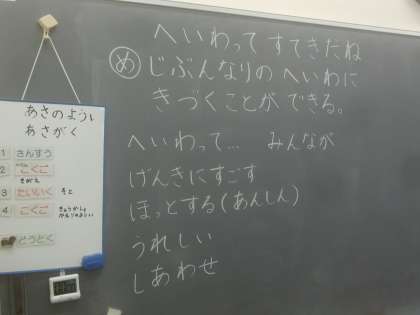 へいわって すてきだね
め じぶんなりの へいわに
きづくことが できる。
へいわって… みんなが
げんきにすごす
ほっとする(あんしん)
うれしい
しあわせ
あさのようい
あさがく
1 さんすう
2 こくご
3 たいいく そと
4 こくご
どうとく